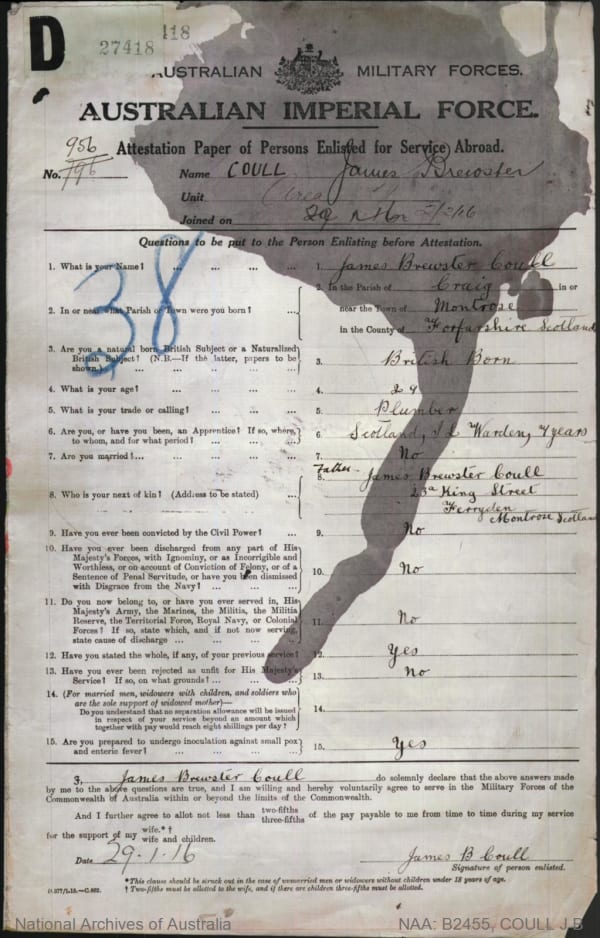 D
27418
AUSTRALIAN MILITARY FORCES.
AUSTRALIAN IMPERIAL FORCE.
Attestation Paper of Persons Enlisted for Service Abroad.
956
No. 796 Name COULL James Brewster
Unit
Joined on
Questions to be put to the Person Enlisting before Attestation.
38
1. What is your Name? ... ... ... ... 1. James Brewster Coull
2. In or near what Parish or Town were you born? ... 2. In the Parish of Craig in or
near the Town of Montrose
in the County of Forfarshire Scotland
3. Are you a natural born British Subject or a Naturalized
British Subject? (N.B.—If the latter, papers to be
shown.) ... ... ... 3. British Born
4. What is your age? ... ... ... ... 4. 29
5. What is your trade or calling? ... ... ... 5. Plumber
6. Are you, or have you been, an Apprentice? If so, where,
to whom, and for what period? ... ... ... 6. Scotland, Warden, 7 years
7. Are you married? ... ... ... ... 7. No
8. Who is your next of kin? (Address to be stated) ... 8. Father- James Brewster Coull
23a King Street
Ferryden
Montrose Scotland
9. Have you ever been convicted by the Civil Power? ... 9. No
10. Have you ever been discharged from any part of His
Majesty's Forces, with Ignominy, or as Incorrigible and
Worthless, or on account of Conviction of Felony, or of a
Sentence of Penal Servitude, or have you been dismissed
with Disgrace from the Navy? ... ... ... 10. No
11. Do you now belong to, or have you ever served in, His
Majesty's Army, the Marines, the Militia, the Militia
Reserve, the Territorial Force, Royal Navy, or Colonial
Forces? If so, state which, and if not now serving,
state cause of discharge ... ... ... ... 11. No
12. Have you stated the whole, if any, of your previous service? 12. Yes
13. Have you ever been rejected as unfit for His Majesty's
Service? If so, on what grounds? ... ... ... 13. No
14. (For married men, widowers with children, and soldiers who
are the sole support of widowed mother)—
Do you understand that no separation allowance will be issued
in respect of your service beyond an amount which
together with pay would reach eight shillings per day? 14.
15. Are you prepared to undergo inoculation against small pox
and enteric fever? ... ... ... ... 15. Yes
I, James Brewster Coull do solemnly declare that the above answers made
by me to the above questions are true, and I am willing and hereby voluntarily agree to serve in the Military Forces of the
Commonwealth of Australia within or beyond the limits of the Commonwealth.
And I further agree to allot not less than two-fifths three-fifths of the pay payable to me from time to time during my service
for the support of my wife.*† wife and children.
Date 29-1-16 James B Coull
Signature of person enlisted.
*This clause should be struck out in the case of unmarried men or widowers without children under 18 years of age.
† Two-fifths must be allotted to the wife, and if there are children three-fifths must be allotted.
National Archives of Australia NAA: B2455, COULL J B